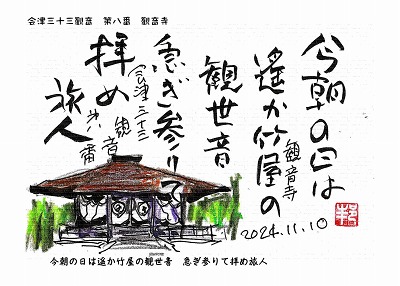 会津三十三観音　第八番　観音寺
今朝の日は
遥か竹屋の
観音寺
観世音
急ぎ参りて
会津三十三
観音
第八番
拝め
旅人
2024.11.10
今朝の日は遥か竹屋の観世音　急ぎ参りて拝め旅人